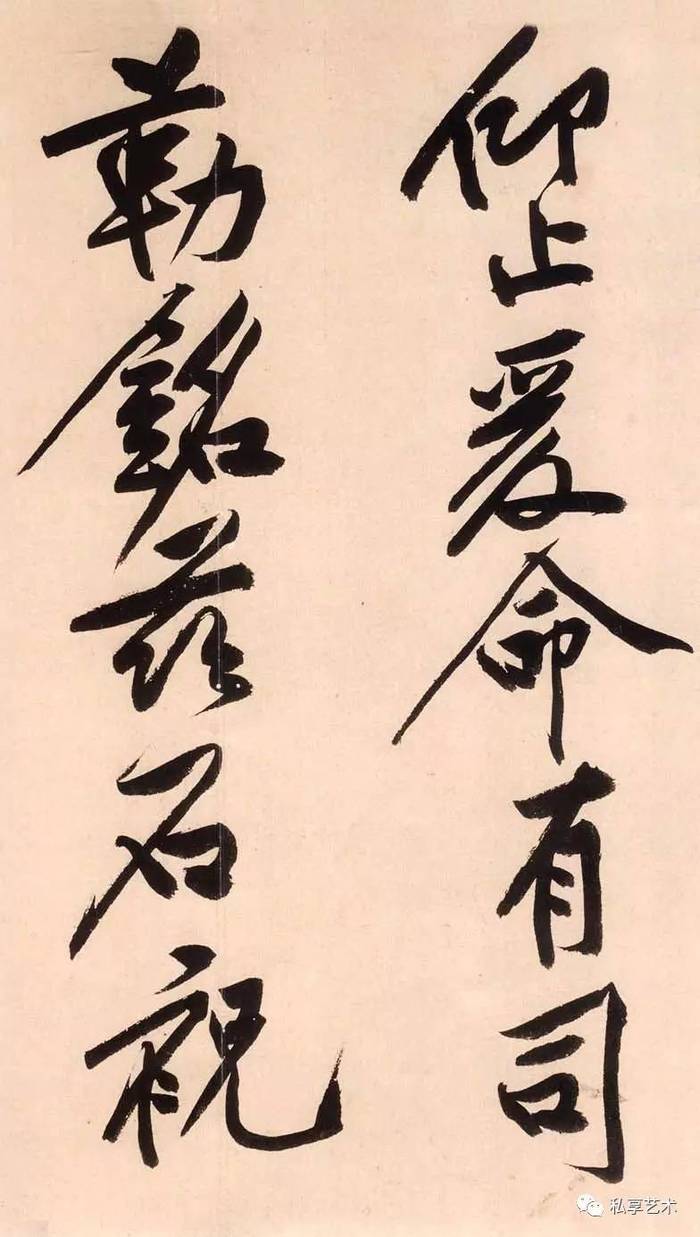 仰止爰命有司
勒銘茲石祝
私享艺术